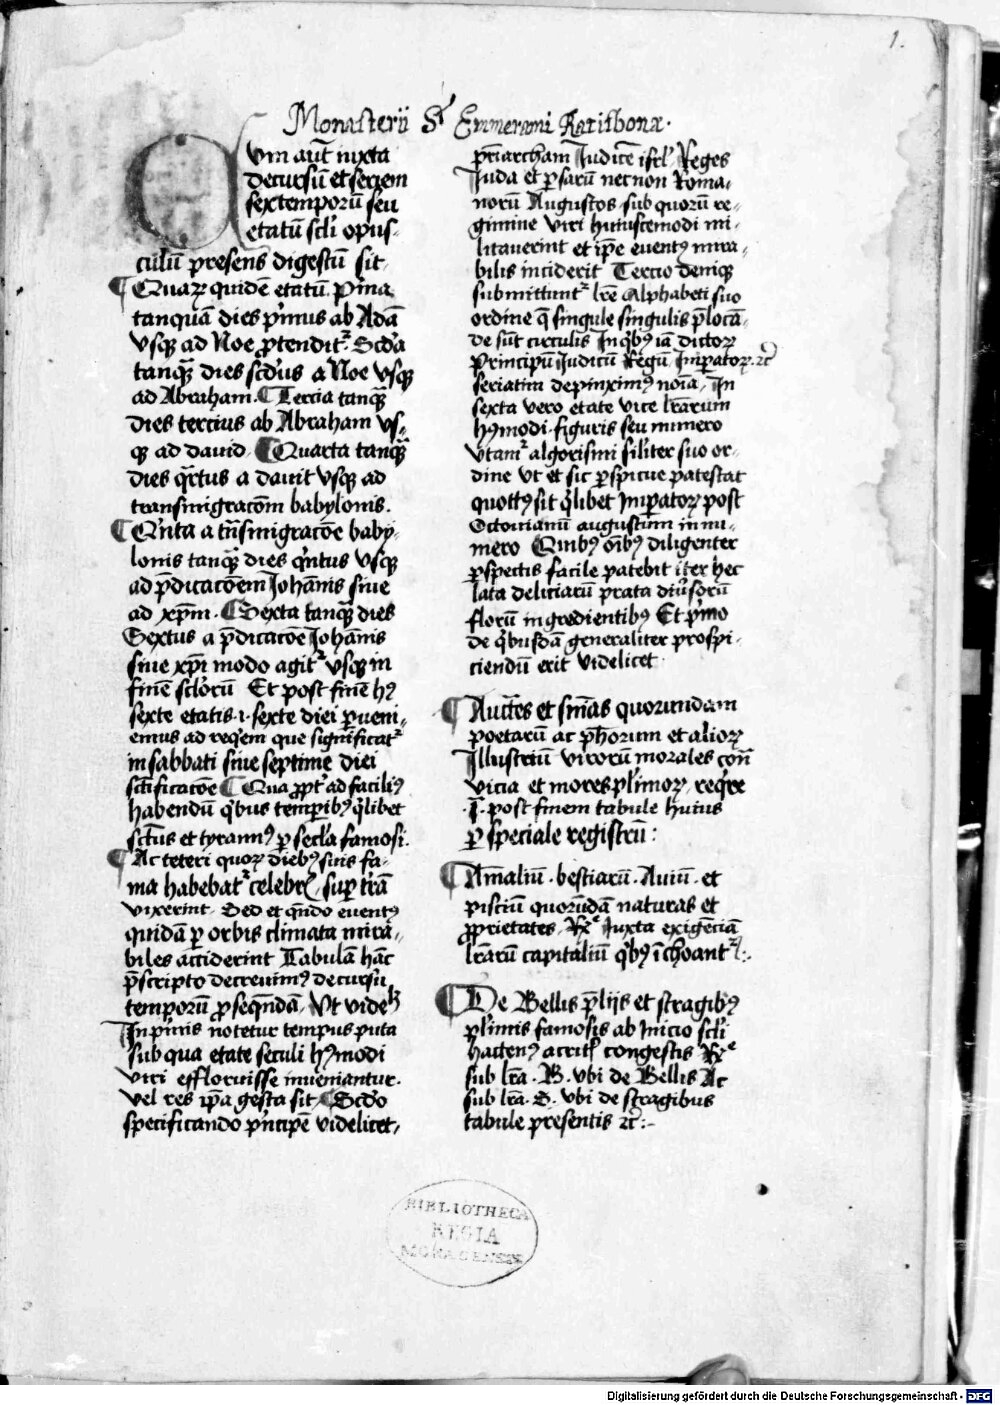 1.
Monasterii S. Emmerami Ratisbonæ.
Cum aut̄ iuxta
decursū et seriem
sex temporū seu
etatū scl̄i opus-
culū presens digestū sit.
¶ Quaꝝ quidē etatū Pͥma
tanquā dies pͥmus ab Adā
vsqꝫ ad Noe ꝓtendit᷑. Scd̄a
tanqꝫ dies scd̄us a Noe vsqꝫ
ad Abraham. ¶ Tercia tanqꝫ
dies tercius ab Abraham vs-
qꝫ ad dauid. ¶ Quarta tanqꝫ
dies qͣrtus a dauit vsqꝫ ad
transmigracōm babylonis.
¶ Qͥnta a trͣnsmigracōe baby-
lonis tanqꝫ dies qͥntus vsqꝫ
ad p̄dicacōem Johānis siue
ad xp̄m. ¶ Sexta tanqꝫ dies
Sextus a p̄dicacōe Johānis
siue xp̄i modo agit᷑ vsqꝫ in
finē sclōrū Et post finē hꝰ
sexte etatis .i. sexte diei ꝑueni-
emus ad reqͥem que significat᷑
in sabbati siue septime diei
sctīficacōe ¶ Qua ꝓpt̄ ad faciliꝰ
habendū qͥbus temporibꝫ qͥlibet
sct̄us et tyrannꝰ ꝑ secl̄a famosi.
¶ Ac ceteri quoꝝ diebꝫ suis fa-
ma habebat᷑ celebris, suꝑ t̄rā
vixerint. Sed et qͣndo euentꝰ
quidā ꝑ orbis climata mira-
biles acciderint Tabulā hāc
p̄scripto decreuimꝰ decursu
temporū ꝓseqͣndā. Vt videlꝫ
In pͥmis notetur tempus puta
sub qua etate seculi hꝰmodi
viri effloruisse inueniantur.
vel res ip̄a gesta sit. ¶ Scd̄o
specificando pͥncipē videlicet,
pr̄iarcham Judicē isrl̄. Reges
Juda et ꝑsarū necnon Roma-
norū Augustos. sub quorū re-
gimine viri huiuscemodi mi-
litauerint et ip̄e euentꝰ mira-
bilis inciderit Tercio deniqꝫ
submittunt᷑ lr̄e Alphabeti suo
ordine q̄ singule singulis p̄locā-
de sūt circulis In qͥbꝫ iā dictoꝝ
Principū Judicū Regū Impatoꝝ. ꝛc̄
seriatim depinximꝰ noīa. In
sexta vero etate vice lr̄arum
hꝰmodi. figuris seu numero
vtam᷑ algorismi silīter suo or-
dine Vt et sic ꝑspicue patescat
quottꝰ sit qͥlibet Imperatoꝝ post
Octouianū augustum in nu-
mero Quibꝫ oībꝫ diligenter
ꝑspectis facile patebit iter hec
lata deliciarū prata diu͛sorū
florū ingredientibꝫ Et pͥmo
de qͥbusdā generaliter prospi-
ciendū erit videlicet
¶ Auct̄es et smās quorundam
poetarū ac ph̄orum et alioꝝ
Illustriū virorum morales con̄
vicia et mores pl̄imoꝝ. reqͥre
.I. post finem tabule huius
ꝑ speciale registrū:
¶ Aīmaliū. bestiarū. Auiū. et
pisciū quorūdā naturas et
ꝓprietates. Rͤ Juxta exigēciā
lr̄arū capitaliū qͥbꝫ īchoant᷑:.
¶ De Bellis p̄lijs et stragibꝫ
pl̄imis famosis ab Inicio scl̄i
hactenꝰ acrit͛ congestis Rͤ
sub lr̄a. B. vbi de Bellis Ac
sub lr̄a. S. vbi de stragibus
tabule presentis ꝛc̄:-
BIBLIOTHECA
REGIA
MONACENSIS
Digitalisierung gefördert durch die Deutsche Forschungsgemeinschaft - DFG